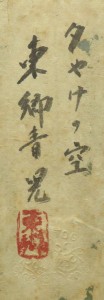 夕やけの空
東郷青児